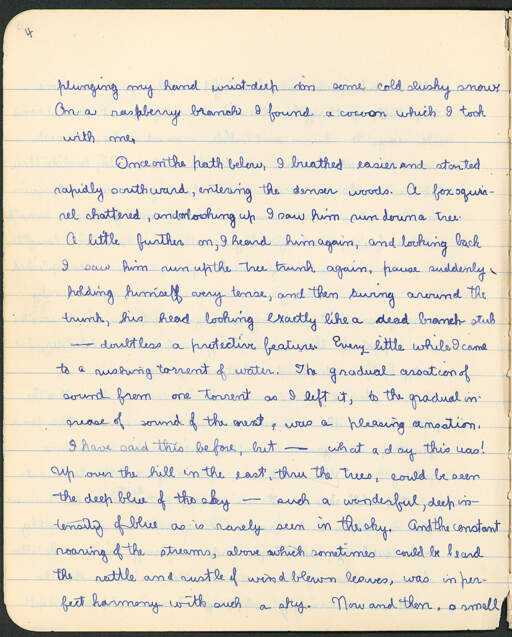 4
plunging my hand wrist-deep in some cold slushy snow.
On a raspberry branch I found a cocoon which I took
with me.
Once on the path below, I breathed easier and started
rapidly southward, entering the denser woods. A fox squir-
rel chattered, and on looking up I saw him run down a tree.
A little further on, I heard him again, and looking back
I saw him run up the tree trunk again, pause suddenly,
holding himself very tense, and then swing around the
trunk, his head looking exactly like a dead branch stub
— doubtless a protective feature. Every little while I came
to a rushing torrent of water. The gradual cessation of
sound from one torrent as I left it, to the gradual in-
crease of sound of the next, was a pleasing sensation.
I have said this before, but — what a day this was!
Up over the hill in the east, thru the trees, could be seen
the deep blue of the sky — such a wonderful, deep in-
tensity of blue as is rarely seen in the sky. And the constant
roaring of the streams, above which sometimes could be heard
the rattle and rustle of wind blown leaves, was in per-
fect harmony with such a sky. Now and then, a small